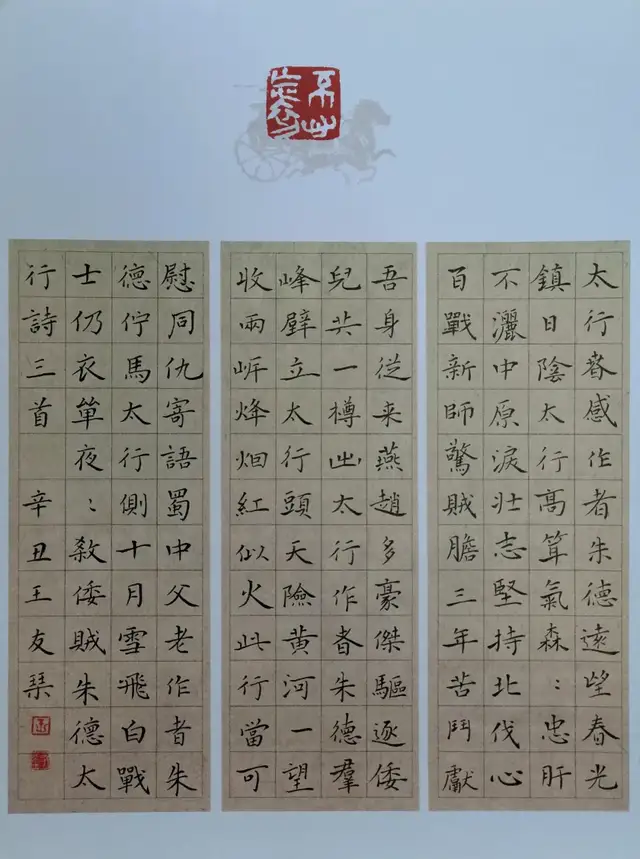 太行春感作者朱德遠望春光
鎮日陰太行高聳氣森〻忠肝
不灑中原淚壯志堅持北伐心
百戰新師驚賊膽三年苦鬥獻
吾身從来燕趙多豪傑驅逐倭
兒共一樽出太行作者朱德羣
峰壁立太行頭天險黄河一望
收兩岍烽烟紅似火此行當可
慰同仇寄語蜀中父老作者朱
德佇馬太行側十月雪飛白戰
士仍衣單夜〻殺倭賊朱德太
行詩三首 辛丑王友琹